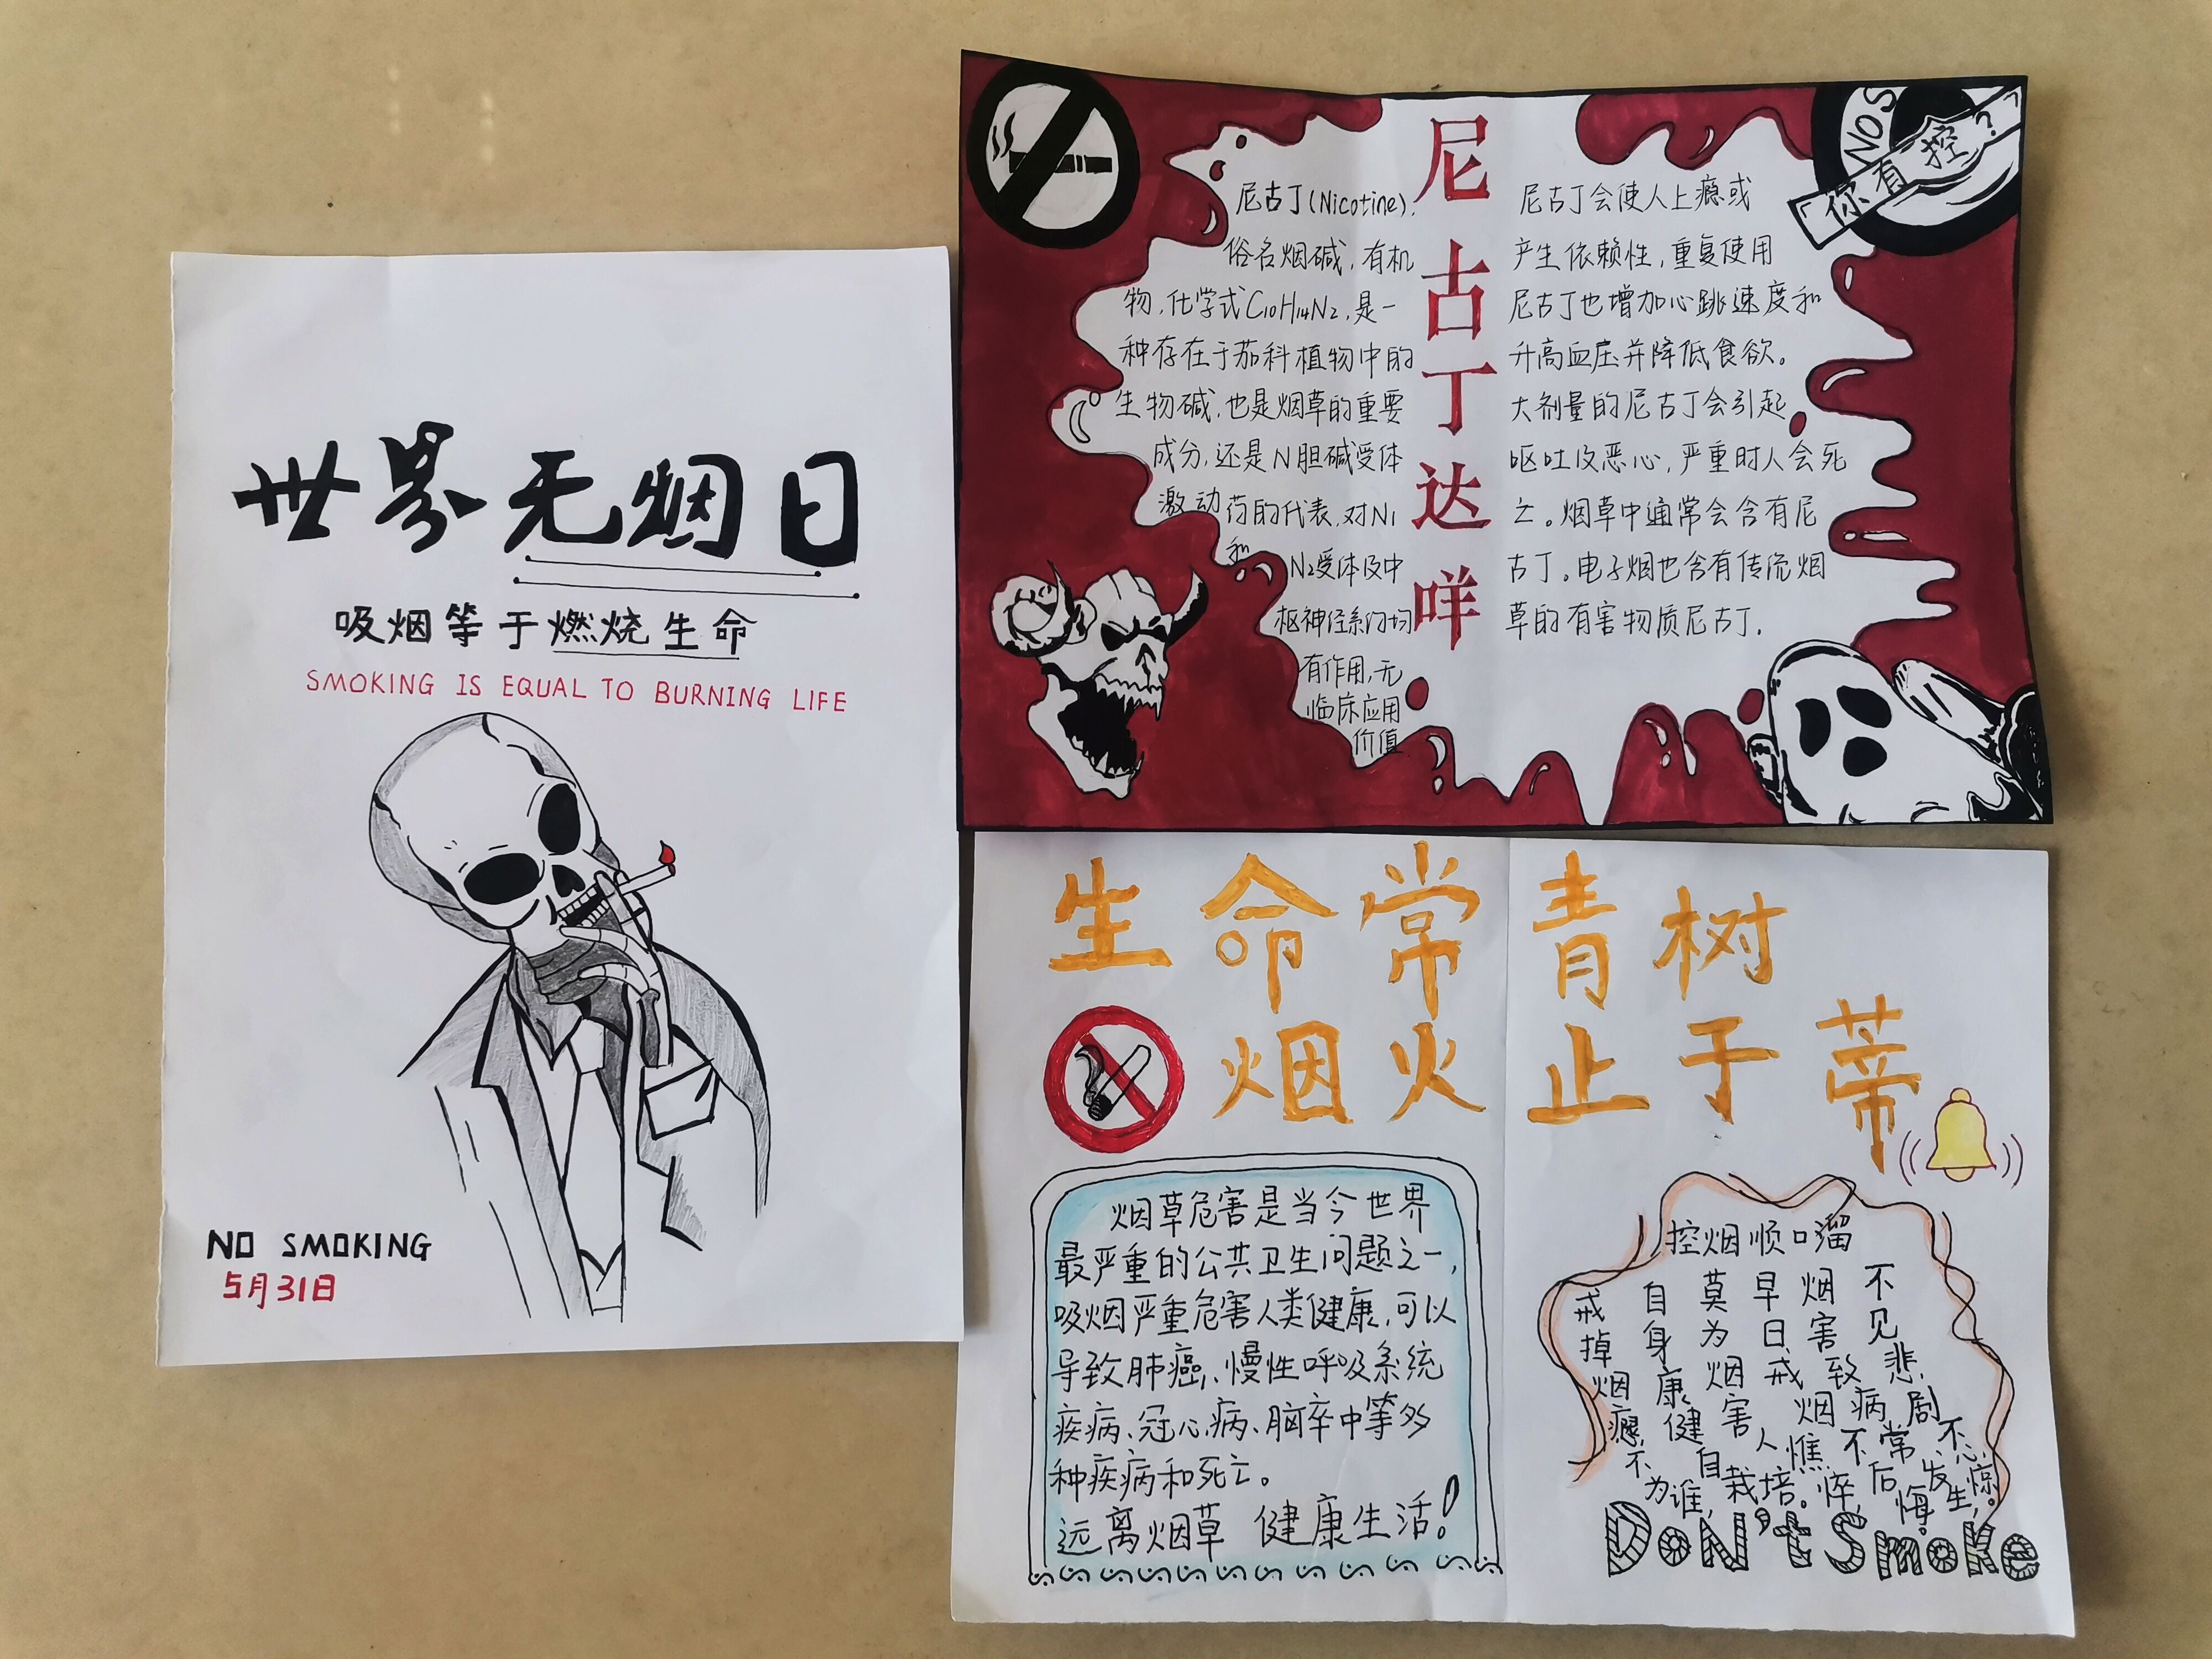 世界无烟日
吸烟等于燃烧生命
SMOKING IS EQUAL TO BURNING LIFE
NO SMOKING
5月31日
尼古丁达咩
尼古丁(Nicotine),
俗名烟碱,有机
物,化学式C10H14N2,是一
种存在于茄科植物中的
生物碱,也是烟草的重要
成分,还是N胆碱受体
激动药的代表,对N1
和N2受体及中
枢神经系内均
有作用,无
临床应用
价值
尼古丁会使人上瘾或
产生依赖性,重复使用
尼古丁也增加心跳速度和
升高血压并降低食欲。
大剂量的尼古丁会引起
呕吐及恶心,严重时人会死
亡。烟草中通常会含有尼
古丁。电子烟也含有传统烟
草的有害物质尼古丁.
NOS
「你有控?
生命常青树
烟火止于蒂
烟草危害是当今世界
最严重的公共卫生问题之一,
吸烟严重危害人类健康,可以
导致肺癌、慢性呼吸系统
疾病、冠心病、脑卒中等多
种疾病和死亡。
远离烟草 健康生活!
控烟顺口溜
不见悲剧不惊。
烟害致病常发生,
早日戒烟不后悔。
莫为烟害人憔悴,
自身康健自栽培。
戒掉烟瘾不为谁,
DoN't SmoKe